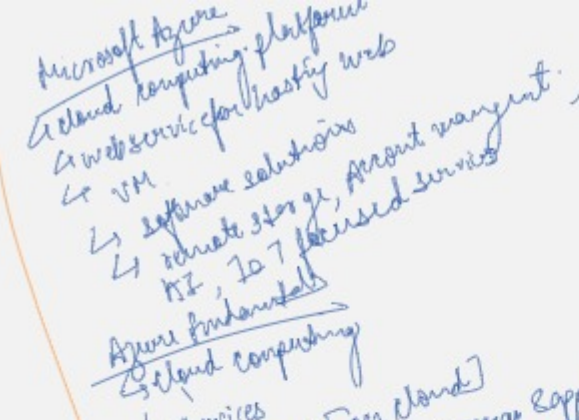 Microsoft Azure
↳ cloud computing platform
↳ web service for hosting web
↳ VM
↳ software solutions
↳ remote storge, Account mangent.
AI, IoT focused services
Azure fundamentals
↳ cloud computing
cloud]